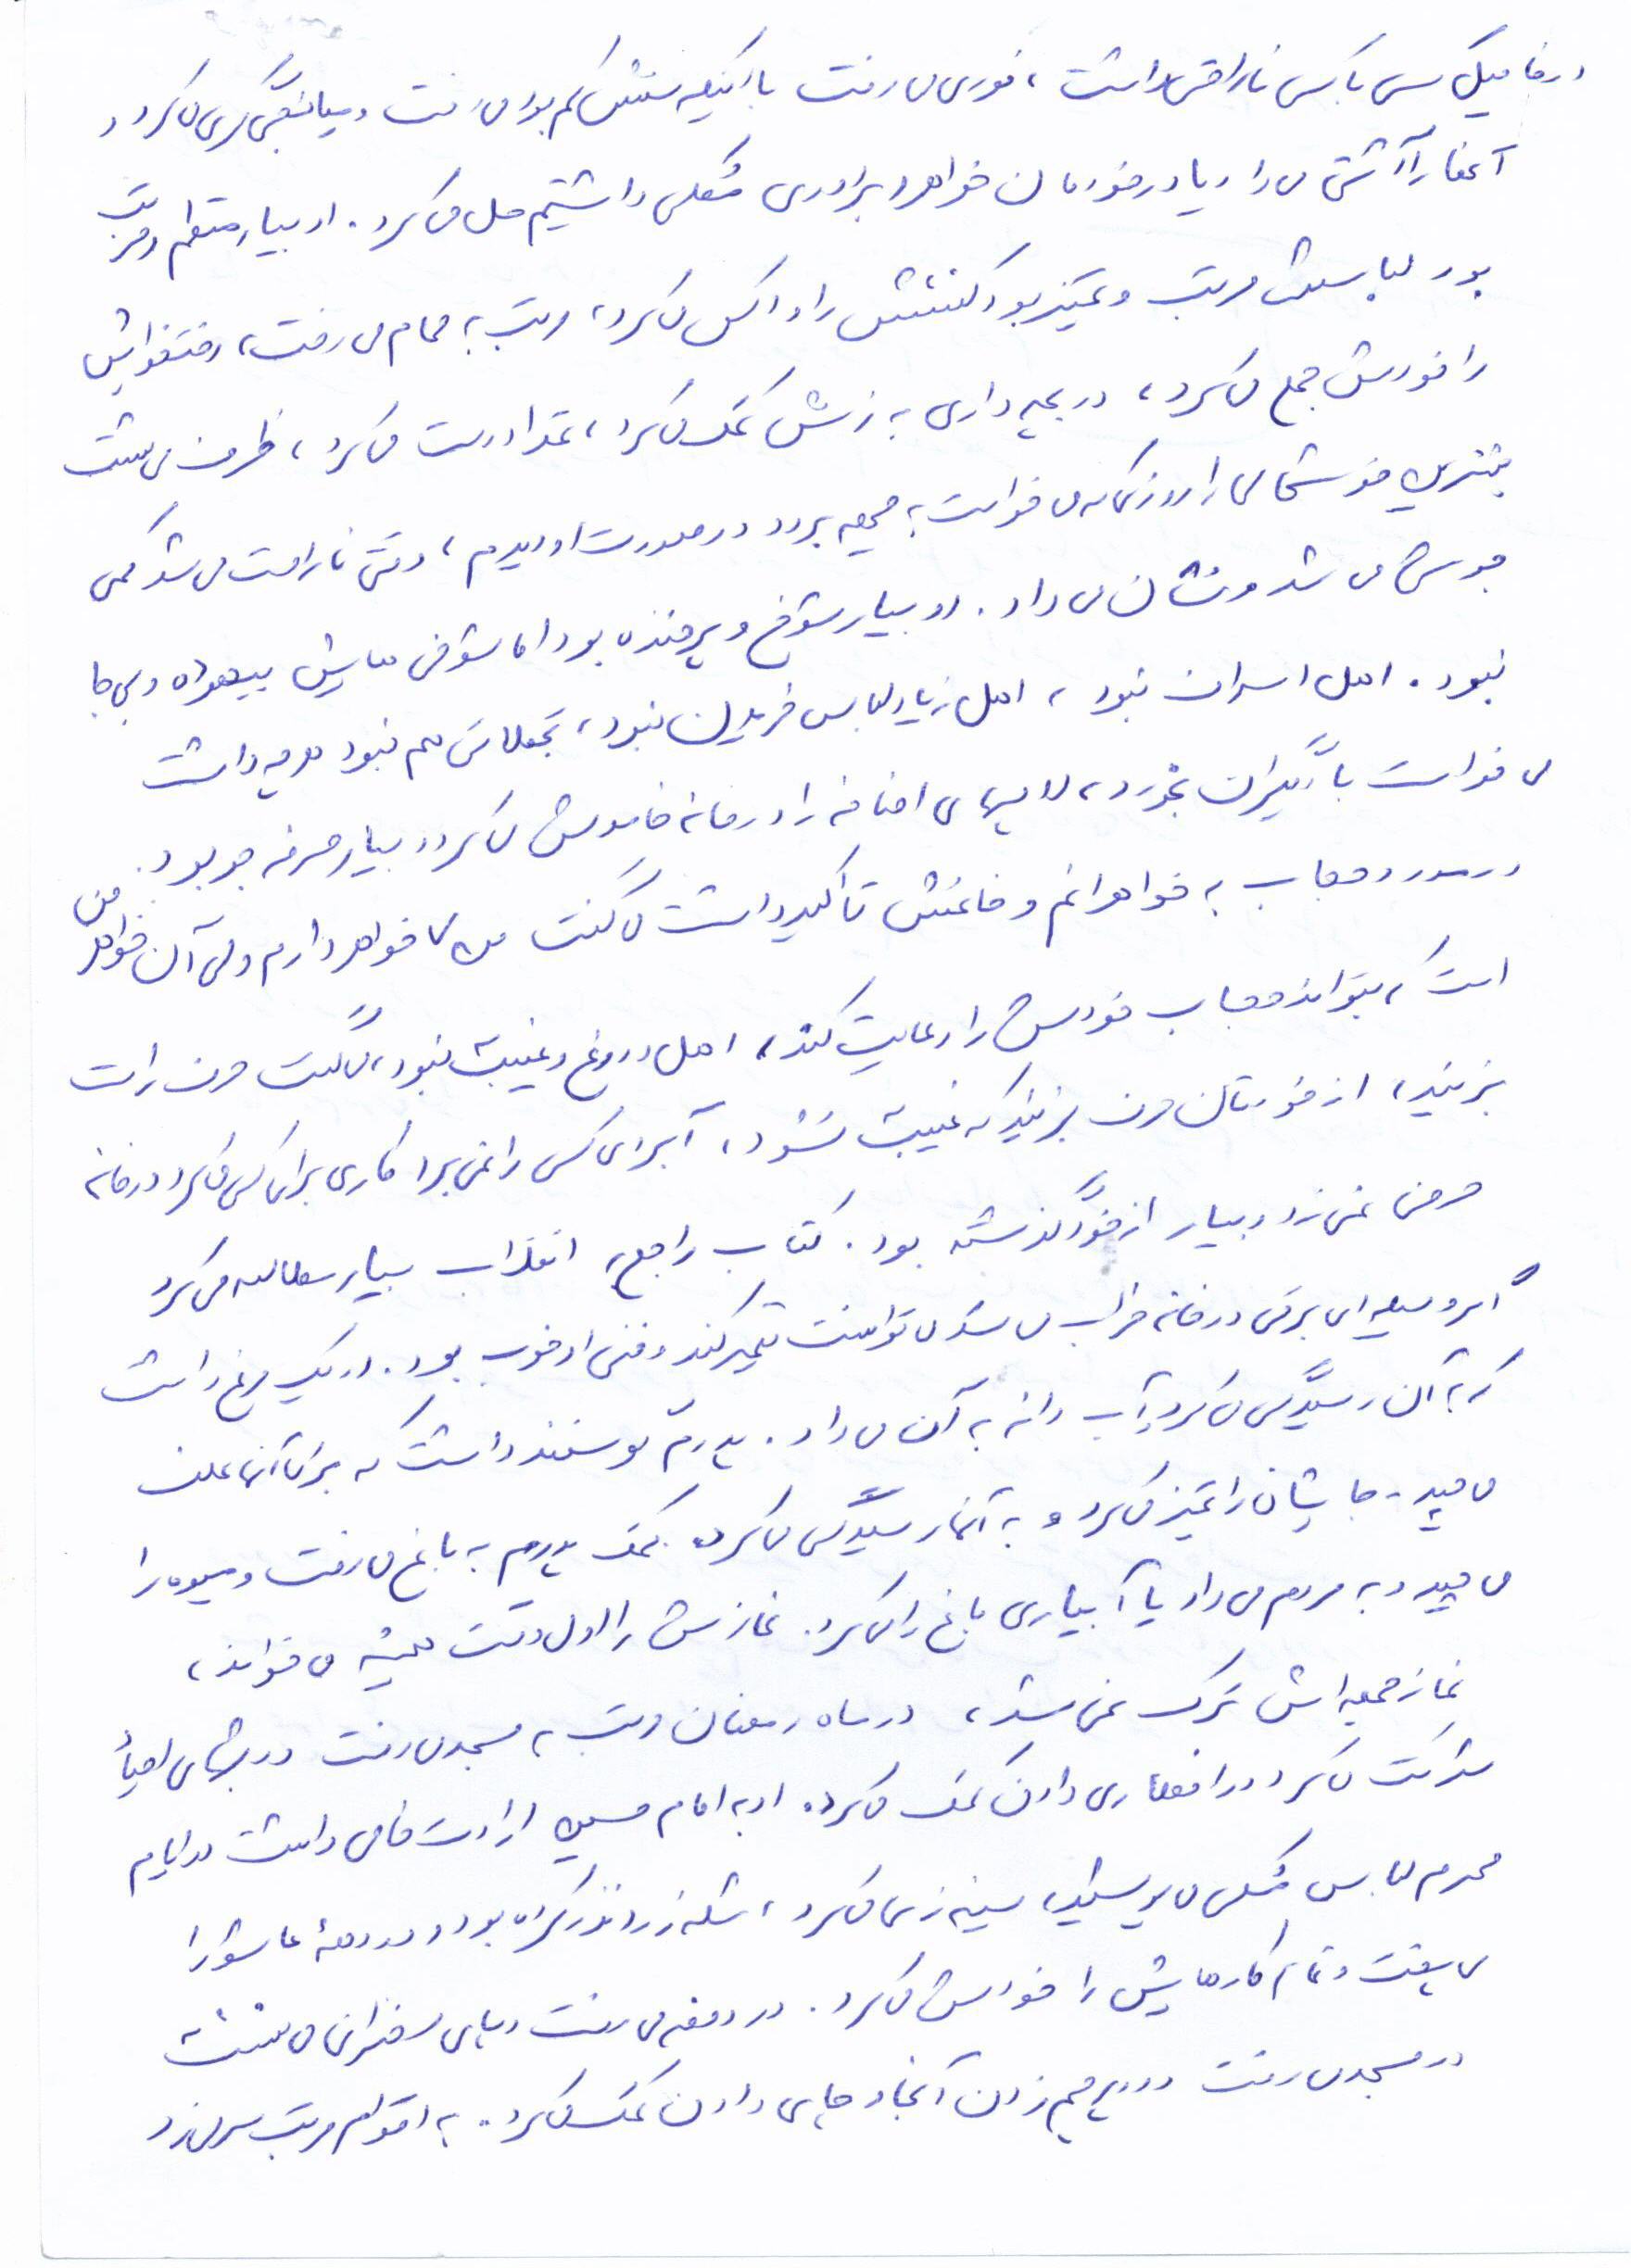 در فامیل کسی با کسی ناراحتی داشت، فوری می رفت با اینکه سنش کم بود می رفت و میانجیگری می کرد و
آنها را آشتی می داد یا در خودمان خواهر و برادری مشکلی داشتیم حل می کرد. او بسیار منظم و مرتب
بود لباسش مرتب و تمیز بود کفشش را واکس می کرد، مرتب به حمام می رفت، رختخوابش
را خودش جمع می کرد، در بچه داری به زنش کمک می کرد، غذا درست می کرد، ظرف می شست
بیشترین خوشحالی را روزی که می خواست به جبهه برود در صورت او دیدم، وقتی ناراحت می شد کمی
جوشی می شد و نشان می داد. او بسیار شوخ و پرخنده بود اما شوخی هایش بیهوده و بی جا
نبود. اهل اسراف نبود، اهل زیاد لباس خریدن نبود، تجملاتی هم نبود هر چه داشت
می خواست با دیگران بخورد، لامپهای اضافه را در خانه خاموش می کرد و بسیار صرفه جو بود.
در مورد حجاب به خواهرانم و خانمش تأکید داشت می گفت من ۷ خواهر دارم ولی آن خواهر من
است که بتواند حجاب خودش را رعایت کند، اهل دروغ و غیبت نبود، می گفت حرف راست
بزنید، از خودتان حرف بزنید که غیبت نشود، آبروی کسی را نمی برد کاری برای کسی می کرد در خانه
حرفی نمی زد و بسیار از خود گذشته بود. کتاب راجع به انقلاب بسیار مطالعه می کرد
اگر وسیله ای برقی در خانه خراب می شد می توانست تعمیر کند و فنی او خوب بود. او یک مرغ داشت
که به آن رسیدگی می کرد و آب و دانه به آن می داد. پدرم گوسفند داشت که برای آنها علف
می چید - جایشان را تمیز می کرد و به آنها رسیدگی می کرد. کمک پدرم به باغ می رفت و میوه را
می چید و به مردم می داد یا آبیاری باغ را می کرد. نمازش را اول وقت همیشه می خواند،
نماز جمعه اش ترک نمی شد، در ماه رمضان مرتب به مسجد می رفت و در شبهای احیاء
شرکت می کرد و در افطاری دادن کمک می کرد. او به امام حسین ارادت خاصی داشت در ایام
محرم لباس مشکی می پوشید، سینه زنی می کرد، شله زرد نذر کرده بود و در دهه عاشورا
می پخت و تمام کارهایش را خودش می کرد. در روضه می رفت و پای سخنرانی می نشست
در مسجد می رفت و در پرچم زدن آنجا و چای دادن کمک می کرد. به اقوام مرتب سر می زد